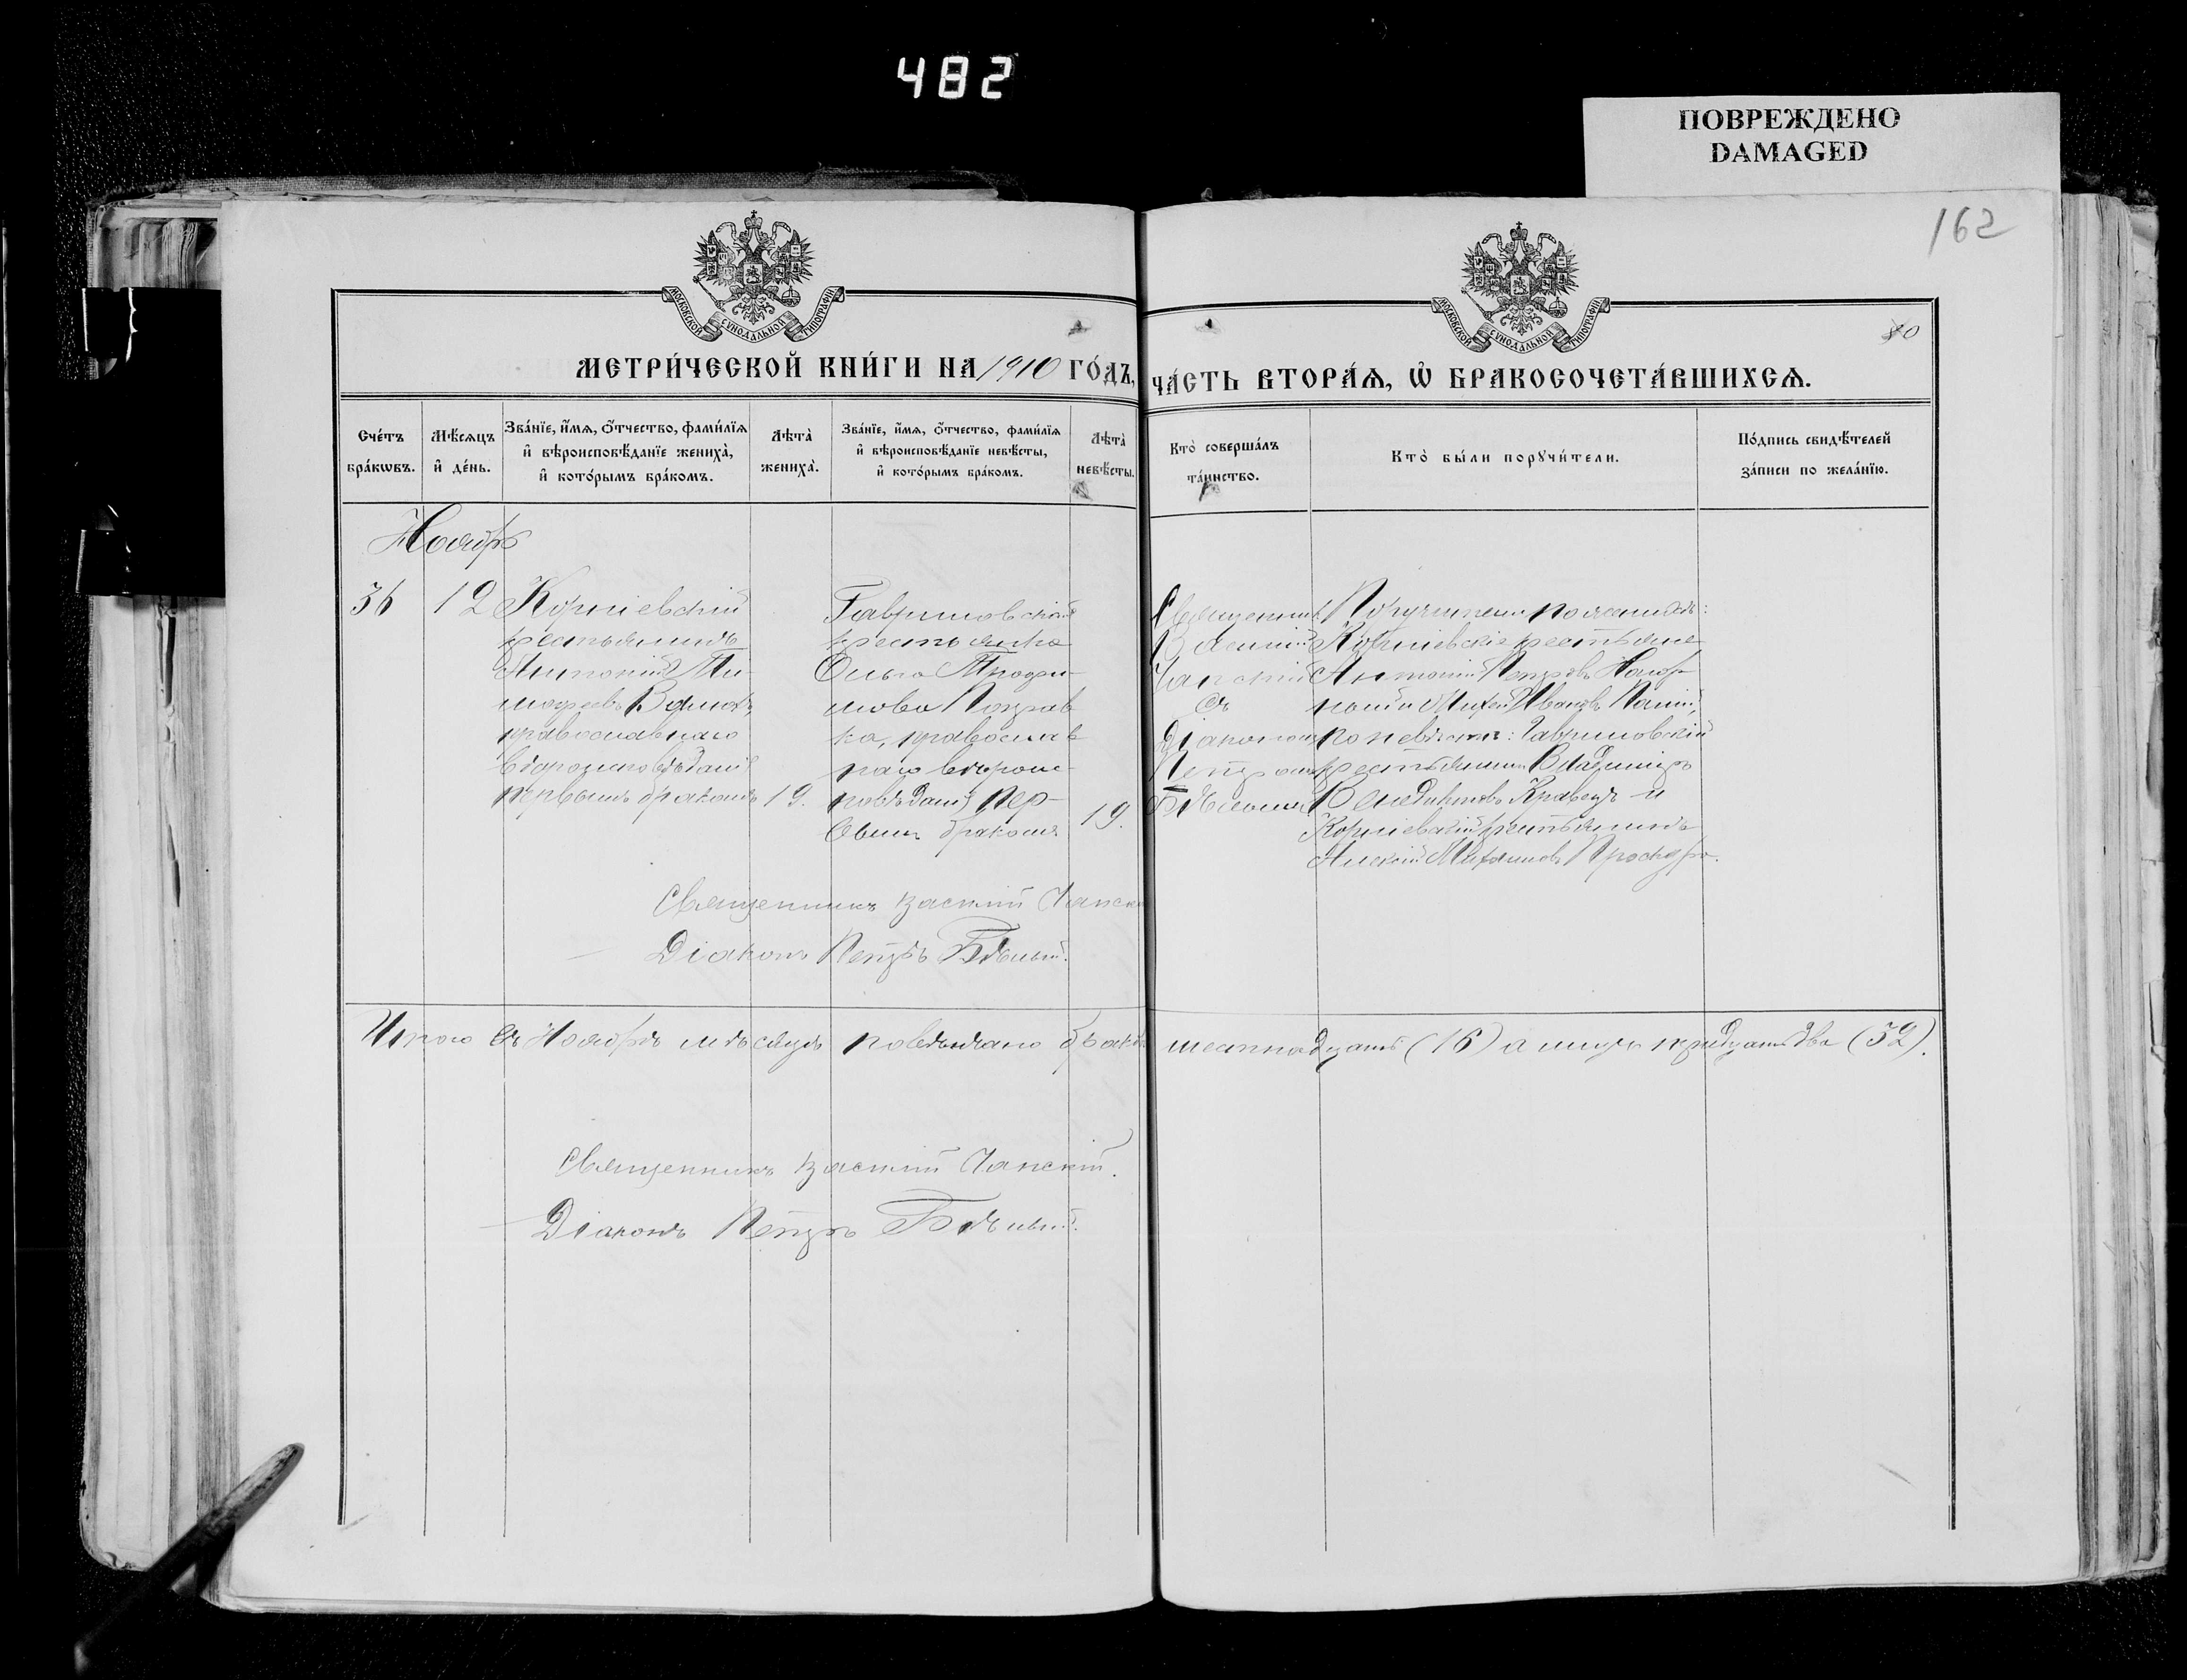 482
ПОВРЕЖДЕНО
DAMAGED
162
МОСКОВСКОЙ СѴНОДАЛЬНОЙ ТИПОГРАФІИ
МОСКОВСКОЙ СѴНОДАЛЬНОЙ ТИПОГРАФІИ
80
МЕТРИ́ЧЕСКОЙ КНИ́ГИ НА 1910 ГО́ДЪ,
ЧА́СТЬ ВТОРА́Ѧ, Ѡ҆ БРАКОСОЧЕТА́ВШИХСѦ.
Сче́тъ бра́кѡвъ.
Мѣ́сѧцъ и҆ де́нь.
Зва́нїе, и҆́мѧ, ѻ҆́тчество, фами́лїѧ
и҆ вѣроисповѣ́данїе жениха̀,
и҆ кото́рымъ бра́комъ.
Лѣта̀ жениха̀.
Зва́нїе, и҆́мѧ, ѻ҆́тчество, фами́лїѧ
и҆ вѣроисповѣ́данїе невѣ́сты,
и҆ кото́рымъ бра́комъ.
Лѣта̀ невѣ́сты.
Кто̀ соверша́лъ
та́инство.
Кто̀ бы́ли порꙋчи́тели.
По́дпись свидѣ́телей
за́писи по жела́нїю.
Ноябрь
36
12
Корніевскій
крестьянинъ
Антоній Ти-
мофеевъ
православнаго
вѣроисповѣданія
первымъ бракомъ
19.
Гавриловской
крестьянка
Ольга Трофи-
мова
ка, православ
наго вѣроис-
повѣданія, пер-
вымъ бракомъ
19.
Священникъ
Василій
Чапскій
съ
Діакономъ
Петромъ
Бѣлымъ
Поручители по женихѣ:
Корніевскіе крестьяне
Антоній Петровъ
и Иванов
по невѣстѣ: Гавриловскій
крестьянинъ Владиміръ
Венедиктовъ Кравецъ и
Корніевскій крестьянинъ
Алексій Михаиловъ Проскура.
Священникъ Василій Чапскі
Діаконъ Петръ Бѣлый.
Итого въ Ноябрѣ мѣсяцѣ повѣнчано браковъ шестнадцать (16) а тридцать два (32).
Священникъ Василій Чапскій.
Діаконъ Петръ Бѣлый.